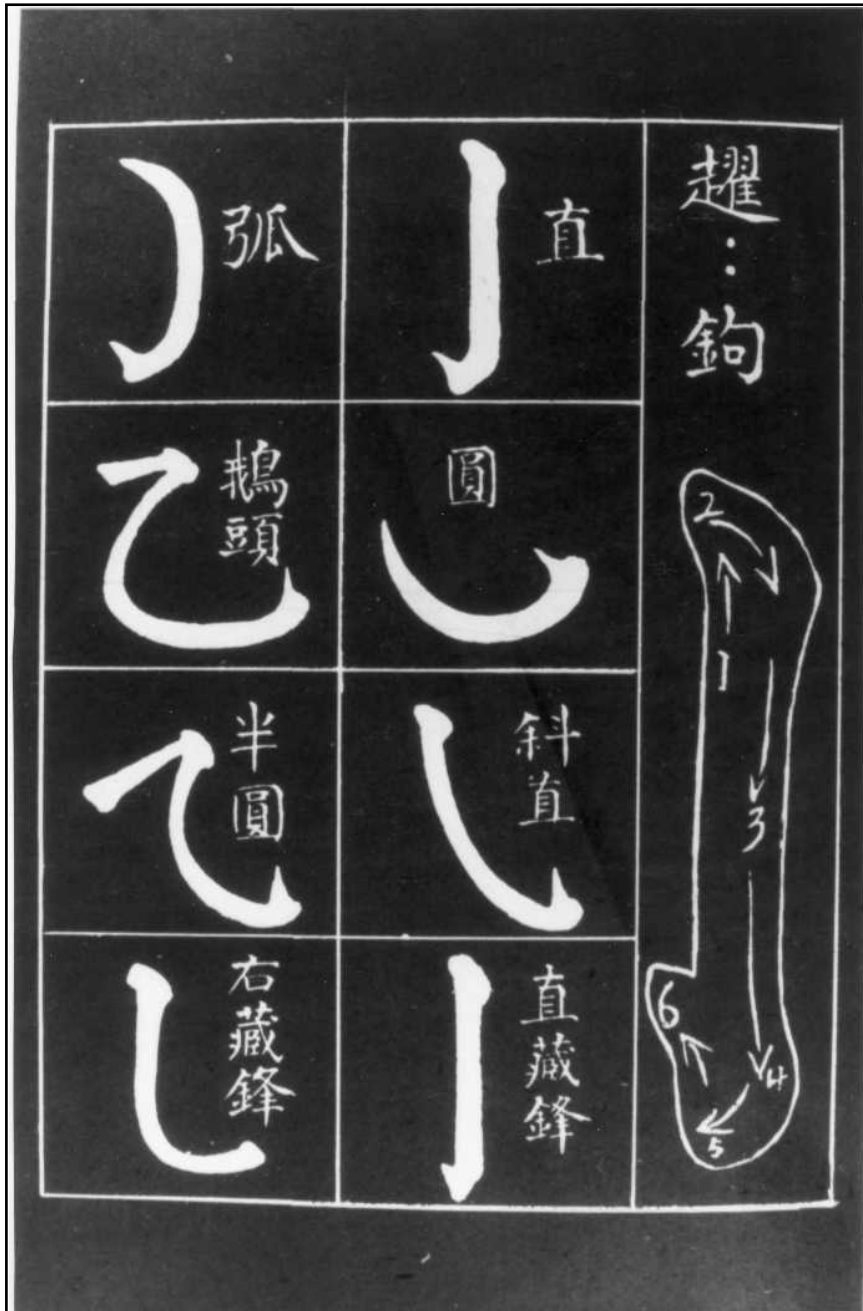 趯：鉤
1
2
3
4
5
6
直
圓
斜直
直藏鋒
弧
鵝頭
半圓
右藏鋒